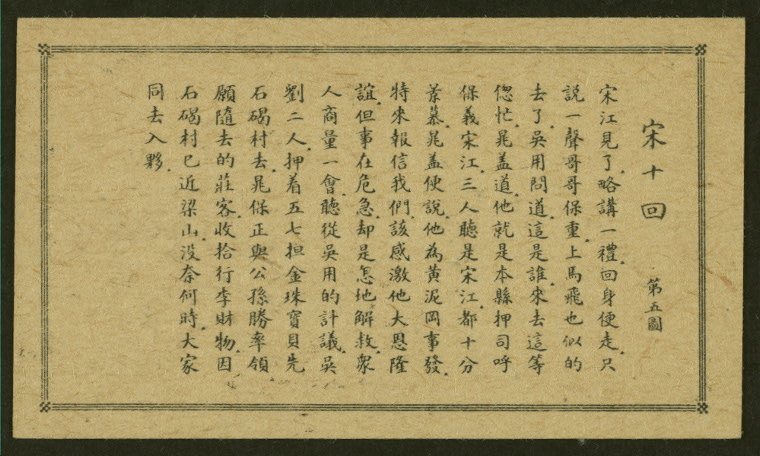 宋十回
第五圖
宋江見了略講一禮回身便走只
説一聲哥哥保重上馬飛也似的
去了吳用問道這是誰來去這等
偬忙晁盖道他就是本縣押司呼
保義宋江三人聽是宋江都十分
景慕晁盖便說他為黃泥岡事發
特來報信我們該感激他大恩隆
誼但事在危急却是怎地解救衆
人商量一會聽從吳用的計議吳
劉二人押着五七担金珠寶貝先
石碣村去晁保正與公孫勝率領
願隨去的莊客收拾行李財物因
石碣村已近梁山没奈何時大家
同去入夥